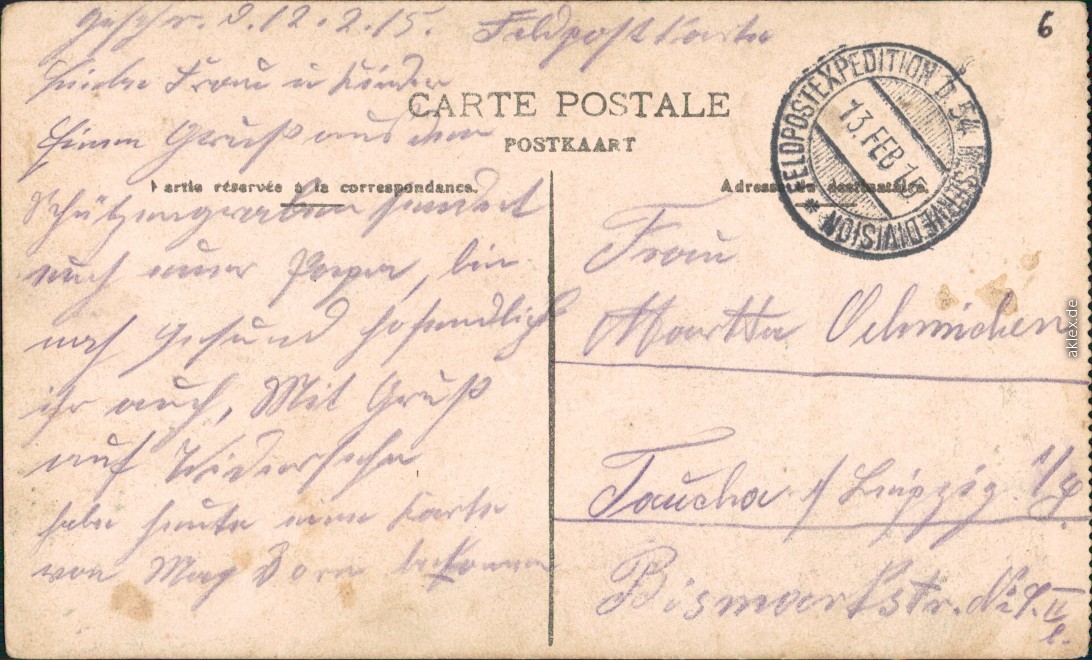 Geschr. d. 12.2.15. Feldpostkarte
Liebe Frau u Kinder
Einen Gruß aus dem
Schützengraben sendet
euch euer Papa, bin
noch gesund hofendlich
ihr auch, Mit Gruß
auf Widersehn
habe heute eine Karte
von Max Dorn bekommen
CARTE POSTALE
POSTKAART
Partie réservée à la correspondance.
Adresse du destinataire.
FELDPOSTEXPEDITION D. 54 RESERVEDIVISION *
13.FEB.15
6
Frau
Martha Oehmichen
Taucha b/ Leipzig
Bismarkstr. No
aklex.de